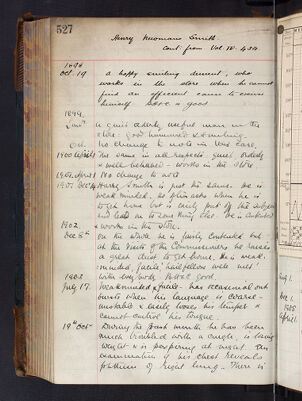 527
Henry Newman Smith.
Cont. from Vol IV. 434
1898
Oct. 19 A happy smiling dement; who
works in the store when he cannot
find an efficient cause to excuse
himself
good
1899
quiet orderly useful man in the
store. Good humoured & smiling
Oct. No change to note in this case.
1900 April the same in all respects quiet orderly
& well behaved - works in the store
1901 April No change to note
1901 Dec Henry Smith is just the same. He is
weak minded, he
to get home but is easily put off the subject
and led on to something else. He is contented
& works in the store.
1902
Dec 8th On the whole he is fairly contented but
at the visits of the Commissioners he raises
a great
to get home. He is weak-
minded, facile
with everybody.
good
1903
July 17. Weakminded & facile - has occasional out
bursts when his language is coarse -
unstable & easily loses his temper &
cannot control his tongue.
19th Oct During the past month he has been
much troubled with a cough, is losing
weight & is perspiring at night. An
examination of his chest reveals
phthisis of right lung. There is